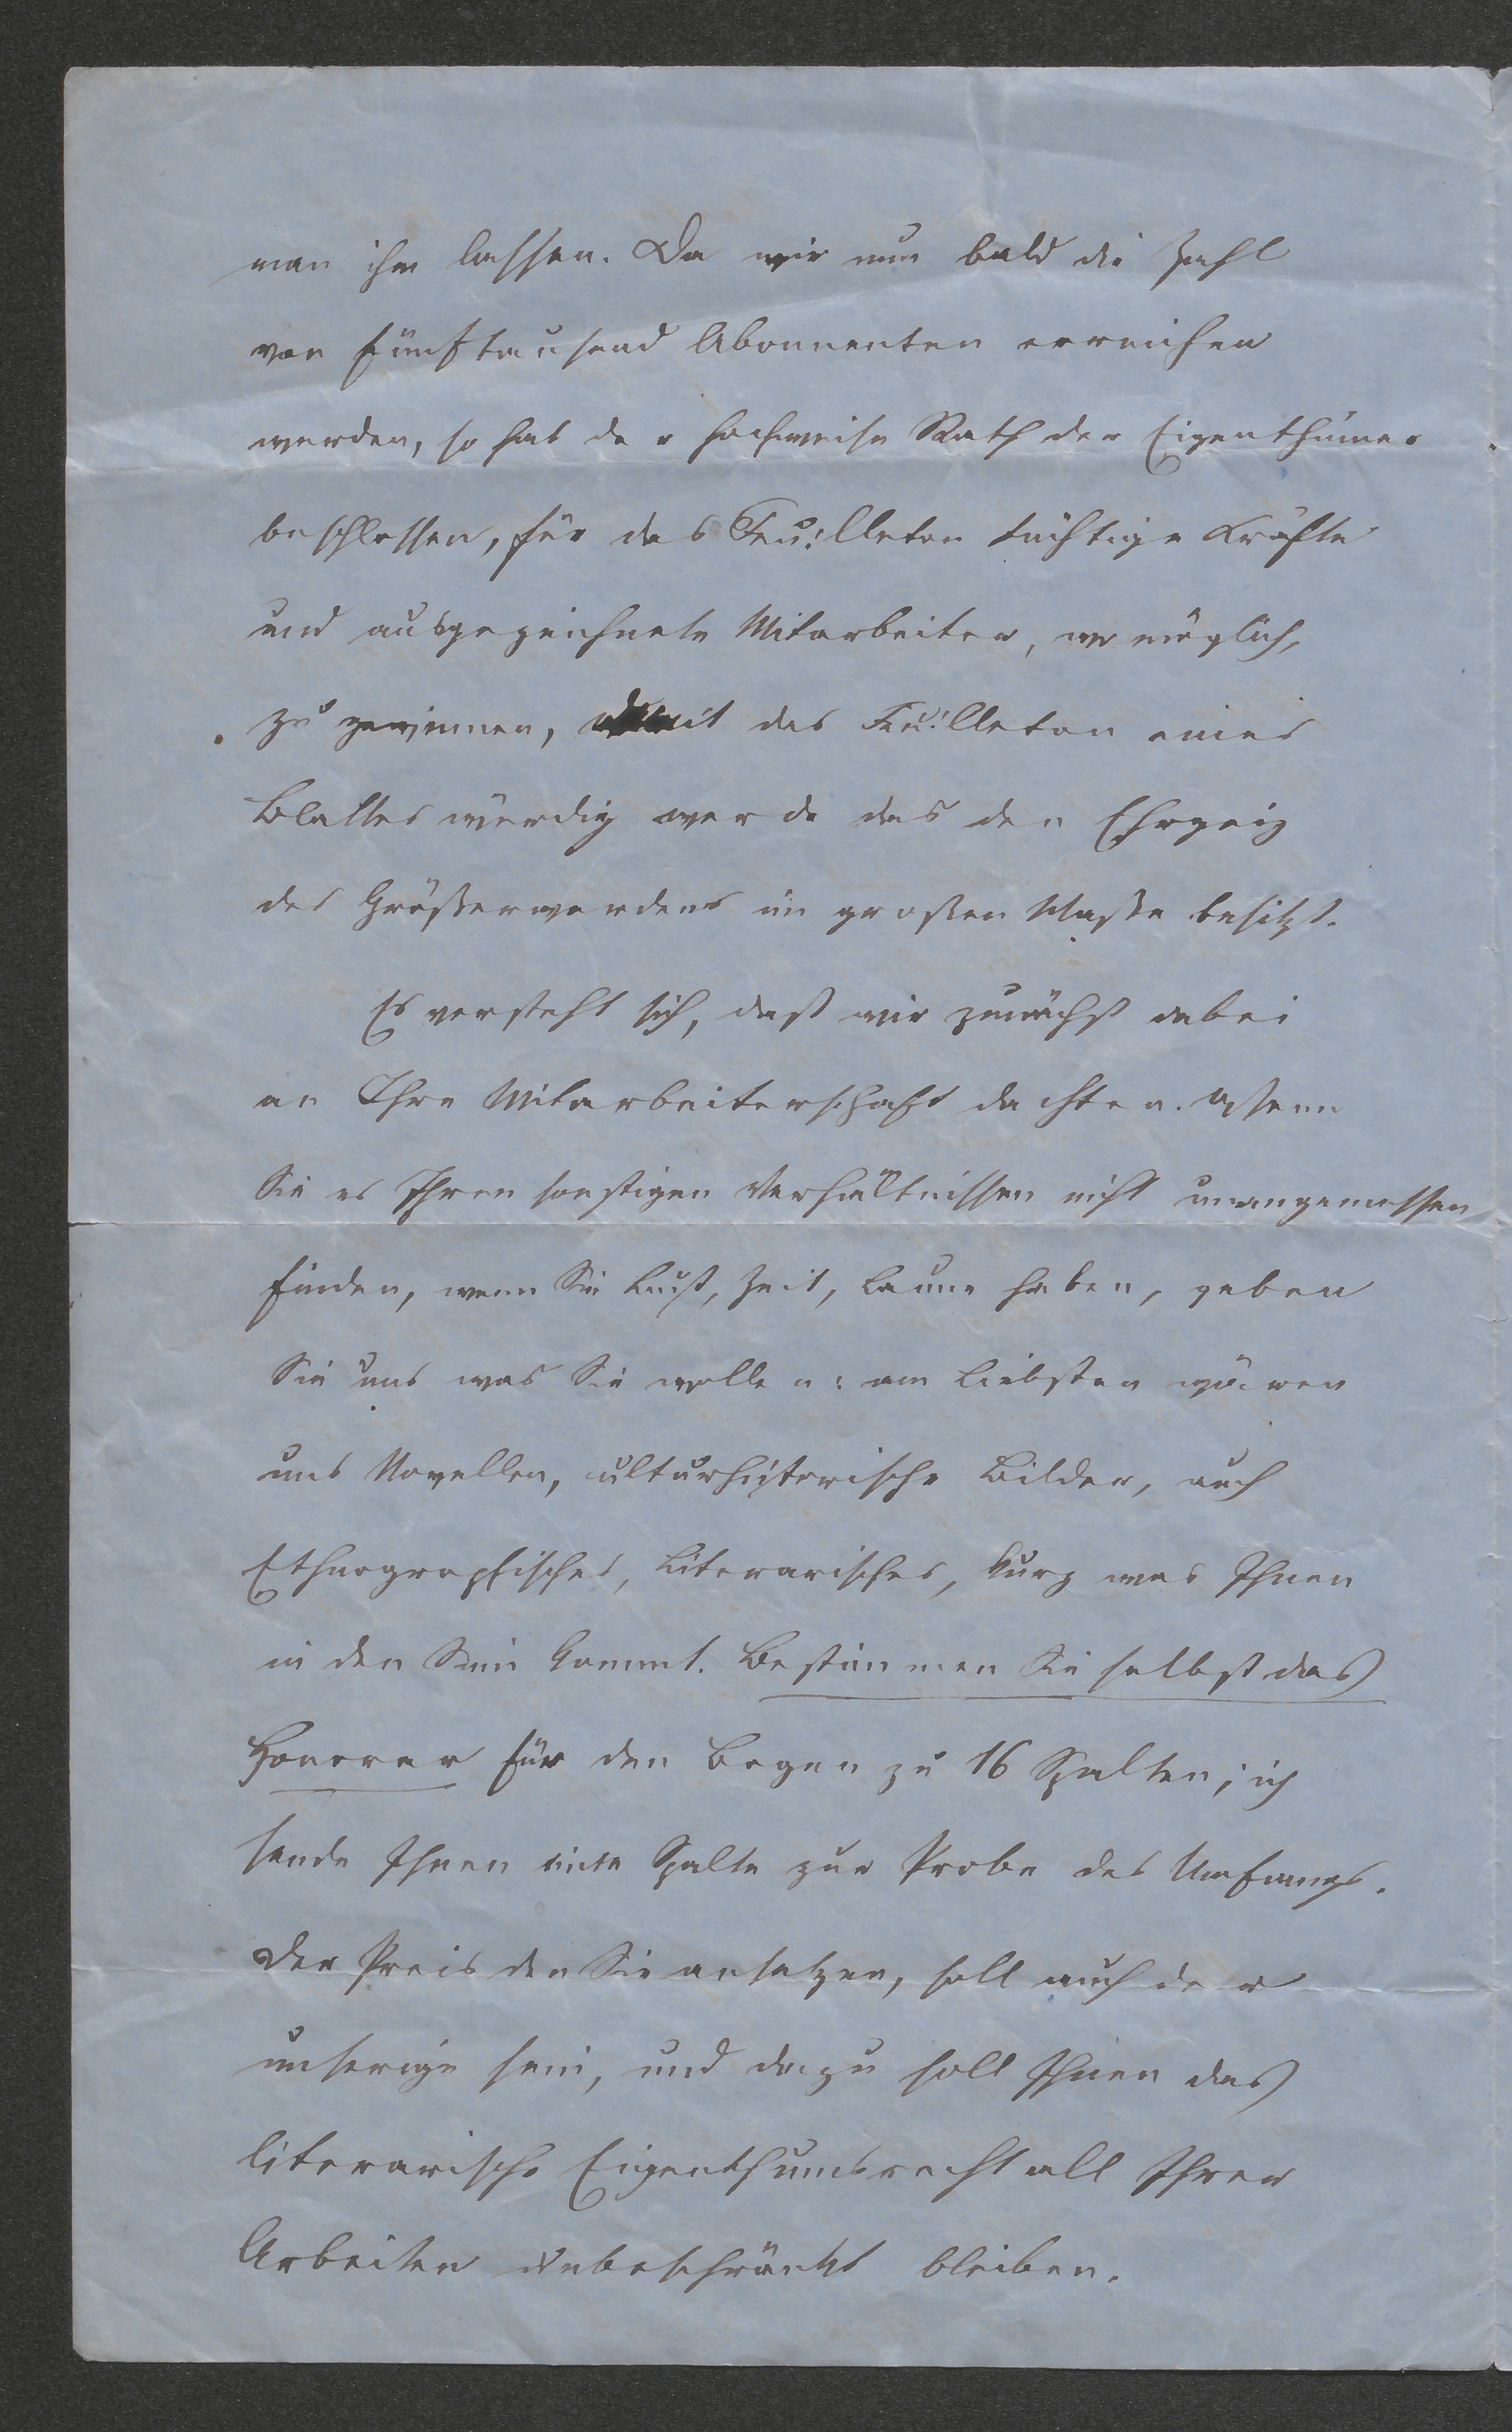 man ihm lassen. Da wir nun bald die Zahl
von fünftausend Abonnenten erreichen
werden, so hat der hochweise Rath der Eigenthümer
beschlossen, für das Feuilleton tüchtige Kräfte
und ausgezeichnete Mitarbeiter, wo möglich,
zu gewinnen, damit das Feuilleton eines
Blattes würdig werde das den Ehrgeiz
des Größerwerdens im großen Maße besitzt.
Es versteht sich, daß wir zunächst dabei
an Ihre Mitarbeiterschaft dachten. Wenn
Sie es Ihren sonstigen Verhältnissen nicht unangemessen
finden, wenn Sie Lust, Zeit, Laune haben, geben
Sie uns was Sie wollen: am Liebsten wären
uns Novellen, culturhistorische Bilder, auch
Ethnographisches, Literarisches, kurz was Ihnen
in den Sinn kommt. Bestimmen Sie selbst das
Honorar für den Bogen zu 16 Spalten; ich
sende Ihnen eine Spalte zur Probe des Umfangs.
Der Preis den Sie ansetzen, soll auch der
unserige sein, und dazu soll Ihnen das
literarische Eigenthumsrecht all Ihrer
Arbeiten unbeschränkt bleiben.